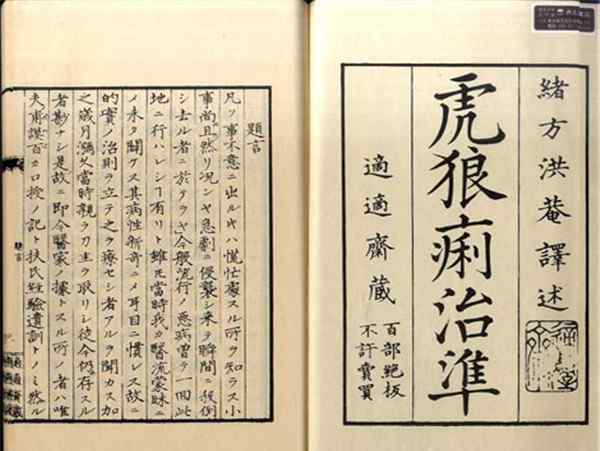 緒方洪菴譯述
虎狼痢治準
適適齋藏
百部絶板
不許賣買
題言
凡ソ事不意ニ出ルヤハ慌忙處スル所ヲ知ラス小
事尚且然リ况ンヤ急劇ニ侵襲シ来テ瞬間ニ殺倒
シ去ル者ニ於テヲヤ今般流行ノ悪病曽テ一回此
地ニ行ハレシヿ有リト雖モ當時我カ醫流蒙昧ニ
メ未タ開ケス其病性新奇ニメ耳目ニ慣レス故ニ
的實ノ治則ヲ立テ之ヲ療セシ者アルヲ聞カス加
之歳月瀰久當時親ラ刀圭ヲ取リシ徒今仍存スル
者尠ナシ是故ニ即今醫家ノ據トスル所ノ者ハ唯
夫甫謨百カ口授ノ記ト扶氏經驗遺訓トノミ然ル
題言